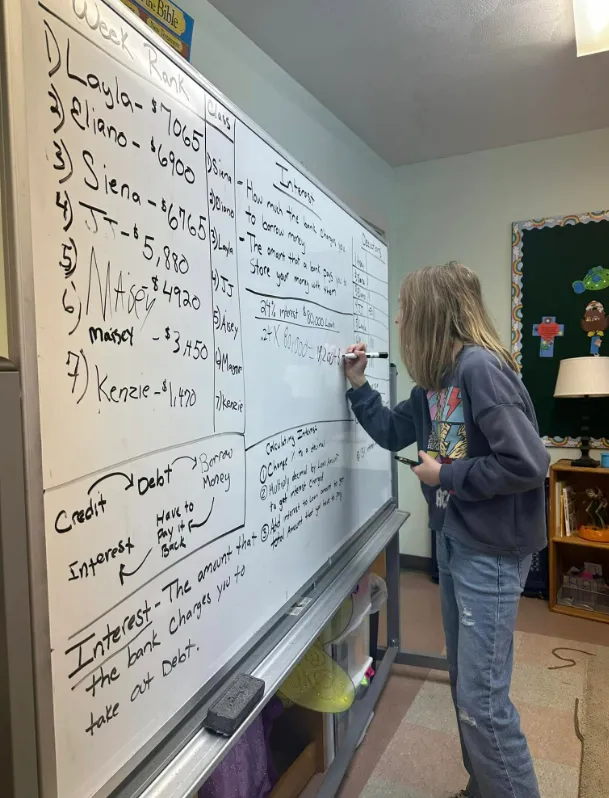 the Bible
Week Rank
1) Layla - $7065
2) Eliano - $6900
3) Siena - $6765
4) JJ - $5,880
5) MAisey $4920
6) massey - $3,450
7) Kenzie - $1,470
Class
1) Siena
2) Eliano
3) Layla
4) JJ
7) Kenzie
Interest
- How much the bank charges you
to borrow money
- The amont that a bank pays you to
Store your money with them
24% interest $80,000 Loan
.24 X 80,000 =
Calculating Interest
① Change % to a decimal
② Multiply decimal by Loan Amount
to get interest charged
③ Add interest to Loan amount to get
total Amount that you have to pay
Credit Debt Borrow
Money
Interest Have to
Pay it
Back
Interest - The amount that
the bank charges you to
take out Debt.